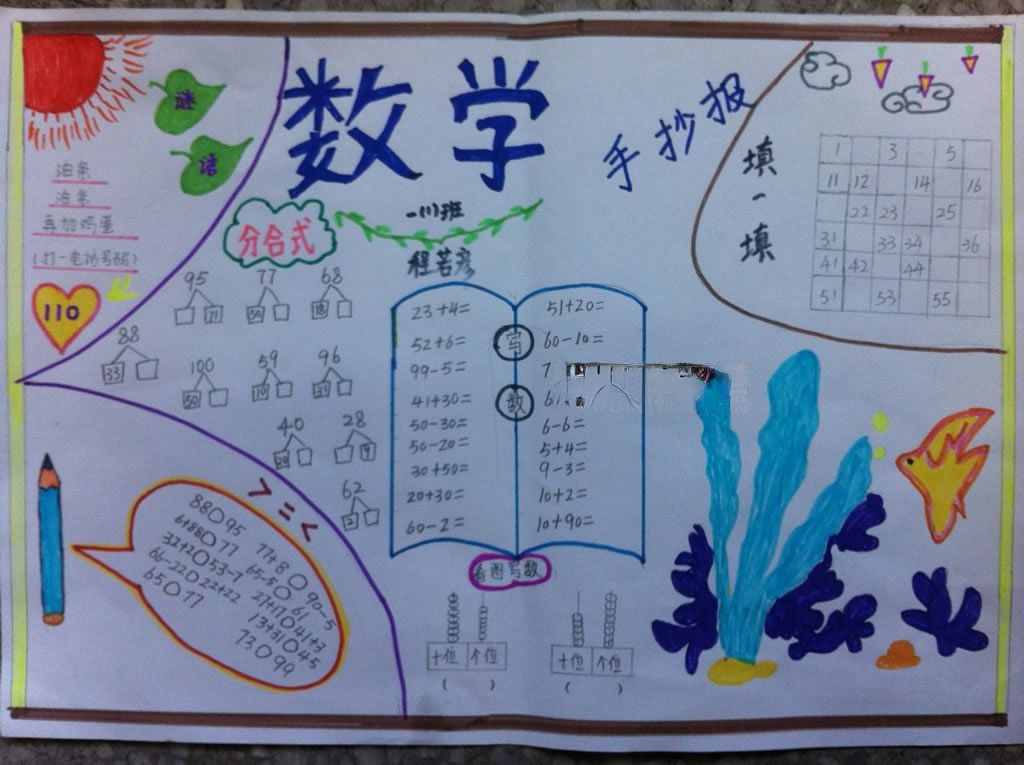 数学
手抄报
一(1)班
程若彦
谜
语
油条
油条
再加鸡蛋
(打一电话号码)
110
分合式
95
77
68
88
33
100
50
59
96
40
20
28
62
2
23+4=
52+6=
99-5=
41+30=
50-30=
50-20=
30+50=
20+30=
60-2=
写
数
51+20=
60-10=
7
6-6=
5+4=
9-3=
10+2=
10+90=
填一填
1 3 5
11 12 14 16
22 23 25
31 33 34 36
41 42 44
51 53 55
> = <
88○95
6+88○77
32+20○53-7
66-22○22+22
65○77
77+8○90-5
65-5○61
27+17○41+3
13+31○45
73○99
看图写数
十位 个位
( )
十位 个位
( )